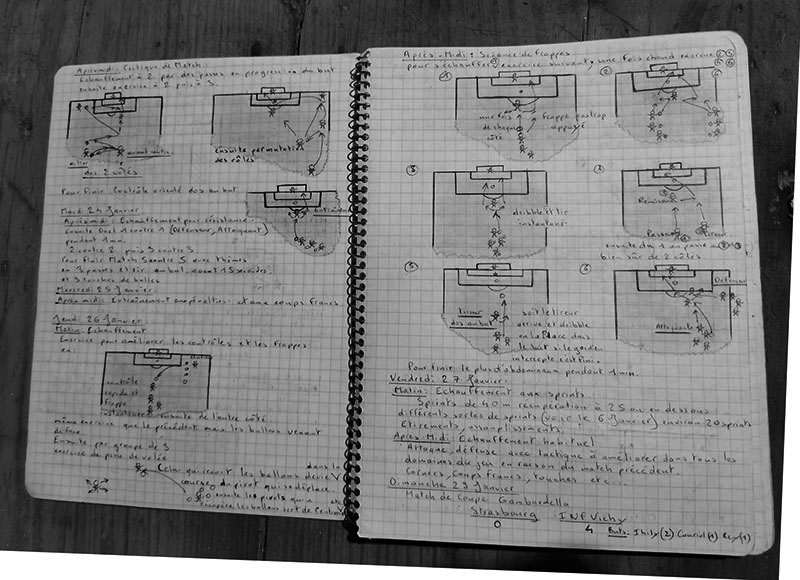 Après midi: Critique de Match.
Echauffement à 2 par des passes en progression du but
ensuite exercice à 2 puis à 3.
des 2 côtés
Ensuite permutation
des rôles
Pour finir Contrôle orienté dos au but
Mardi 24 Janvier
Après midi: Echauffement pour résistance
Ensuite Duel 1 contre 1 (Défenseur, Attaquant)
pendant 1 mn.
2 contre 2 puis 3 contre 3
Pour finir Match 5 contre 5 avec thèmes
en 3 passes et tir au but avant 15 secondes.
et 3 touches de balles
Mercredi 25 Janvier:
Après midi: Entraînement aux pénalties: et aux coups francs
Jeudi 26 Janvier
Matin: Echauffement
Exercice pour améliorer les contrôles et les frappes
en:
contrôle
rapide et
frappe
instantanée ensuite de l'autre côté
même exercice que le précédent mais les ballons venant
de face
Ensuite par groupe de 3
exercice de passe de volée
Celui qui reçoit les ballons dévie dans la
course du pivot qui se déplace
ensuite les pivots qui a
récupéré les ballons sert de
Après-Midi: Séance de frappes
pour s'échauffer exercice suivant, une fois chaud exercice
①
une fois
de chaque
côté
frappe pas trop
appuyé
②
③
dribble et tir
instantané
Remiseur
Passeur
Tireur
ensuite du 1 on passe au
bien sûr de 2 côtés.
⑤
tireur
dos au but
soit le tireur
arrive et dribble
ou la place dans
le but si le gardien
intercepte c'est fini.
⑥
Défenseur
Attaquants
Pour finir le plus d'abdominaux pendant 1 mn.
Vendredi 27 Janvier:
Matin: Echauffement aux sprints.
Sprints de 40m récupération à 25 ou en dessous
différents sortes de sprints (voir le 6 Janvier) environ 20 sprints
Etirements, assouplissements.
Après Midi: Echauffement habituel
Attaque, défense avec tactique à améliorer dans tous les
domaines du jeu en raison du match précédent.
Corners, Coups francs, touches etc...
Dimanche 29 Janvier
Match de Coupe Gambardella
Strasbourg INF Vichy
0 4 Buts: (2) (1) (1)